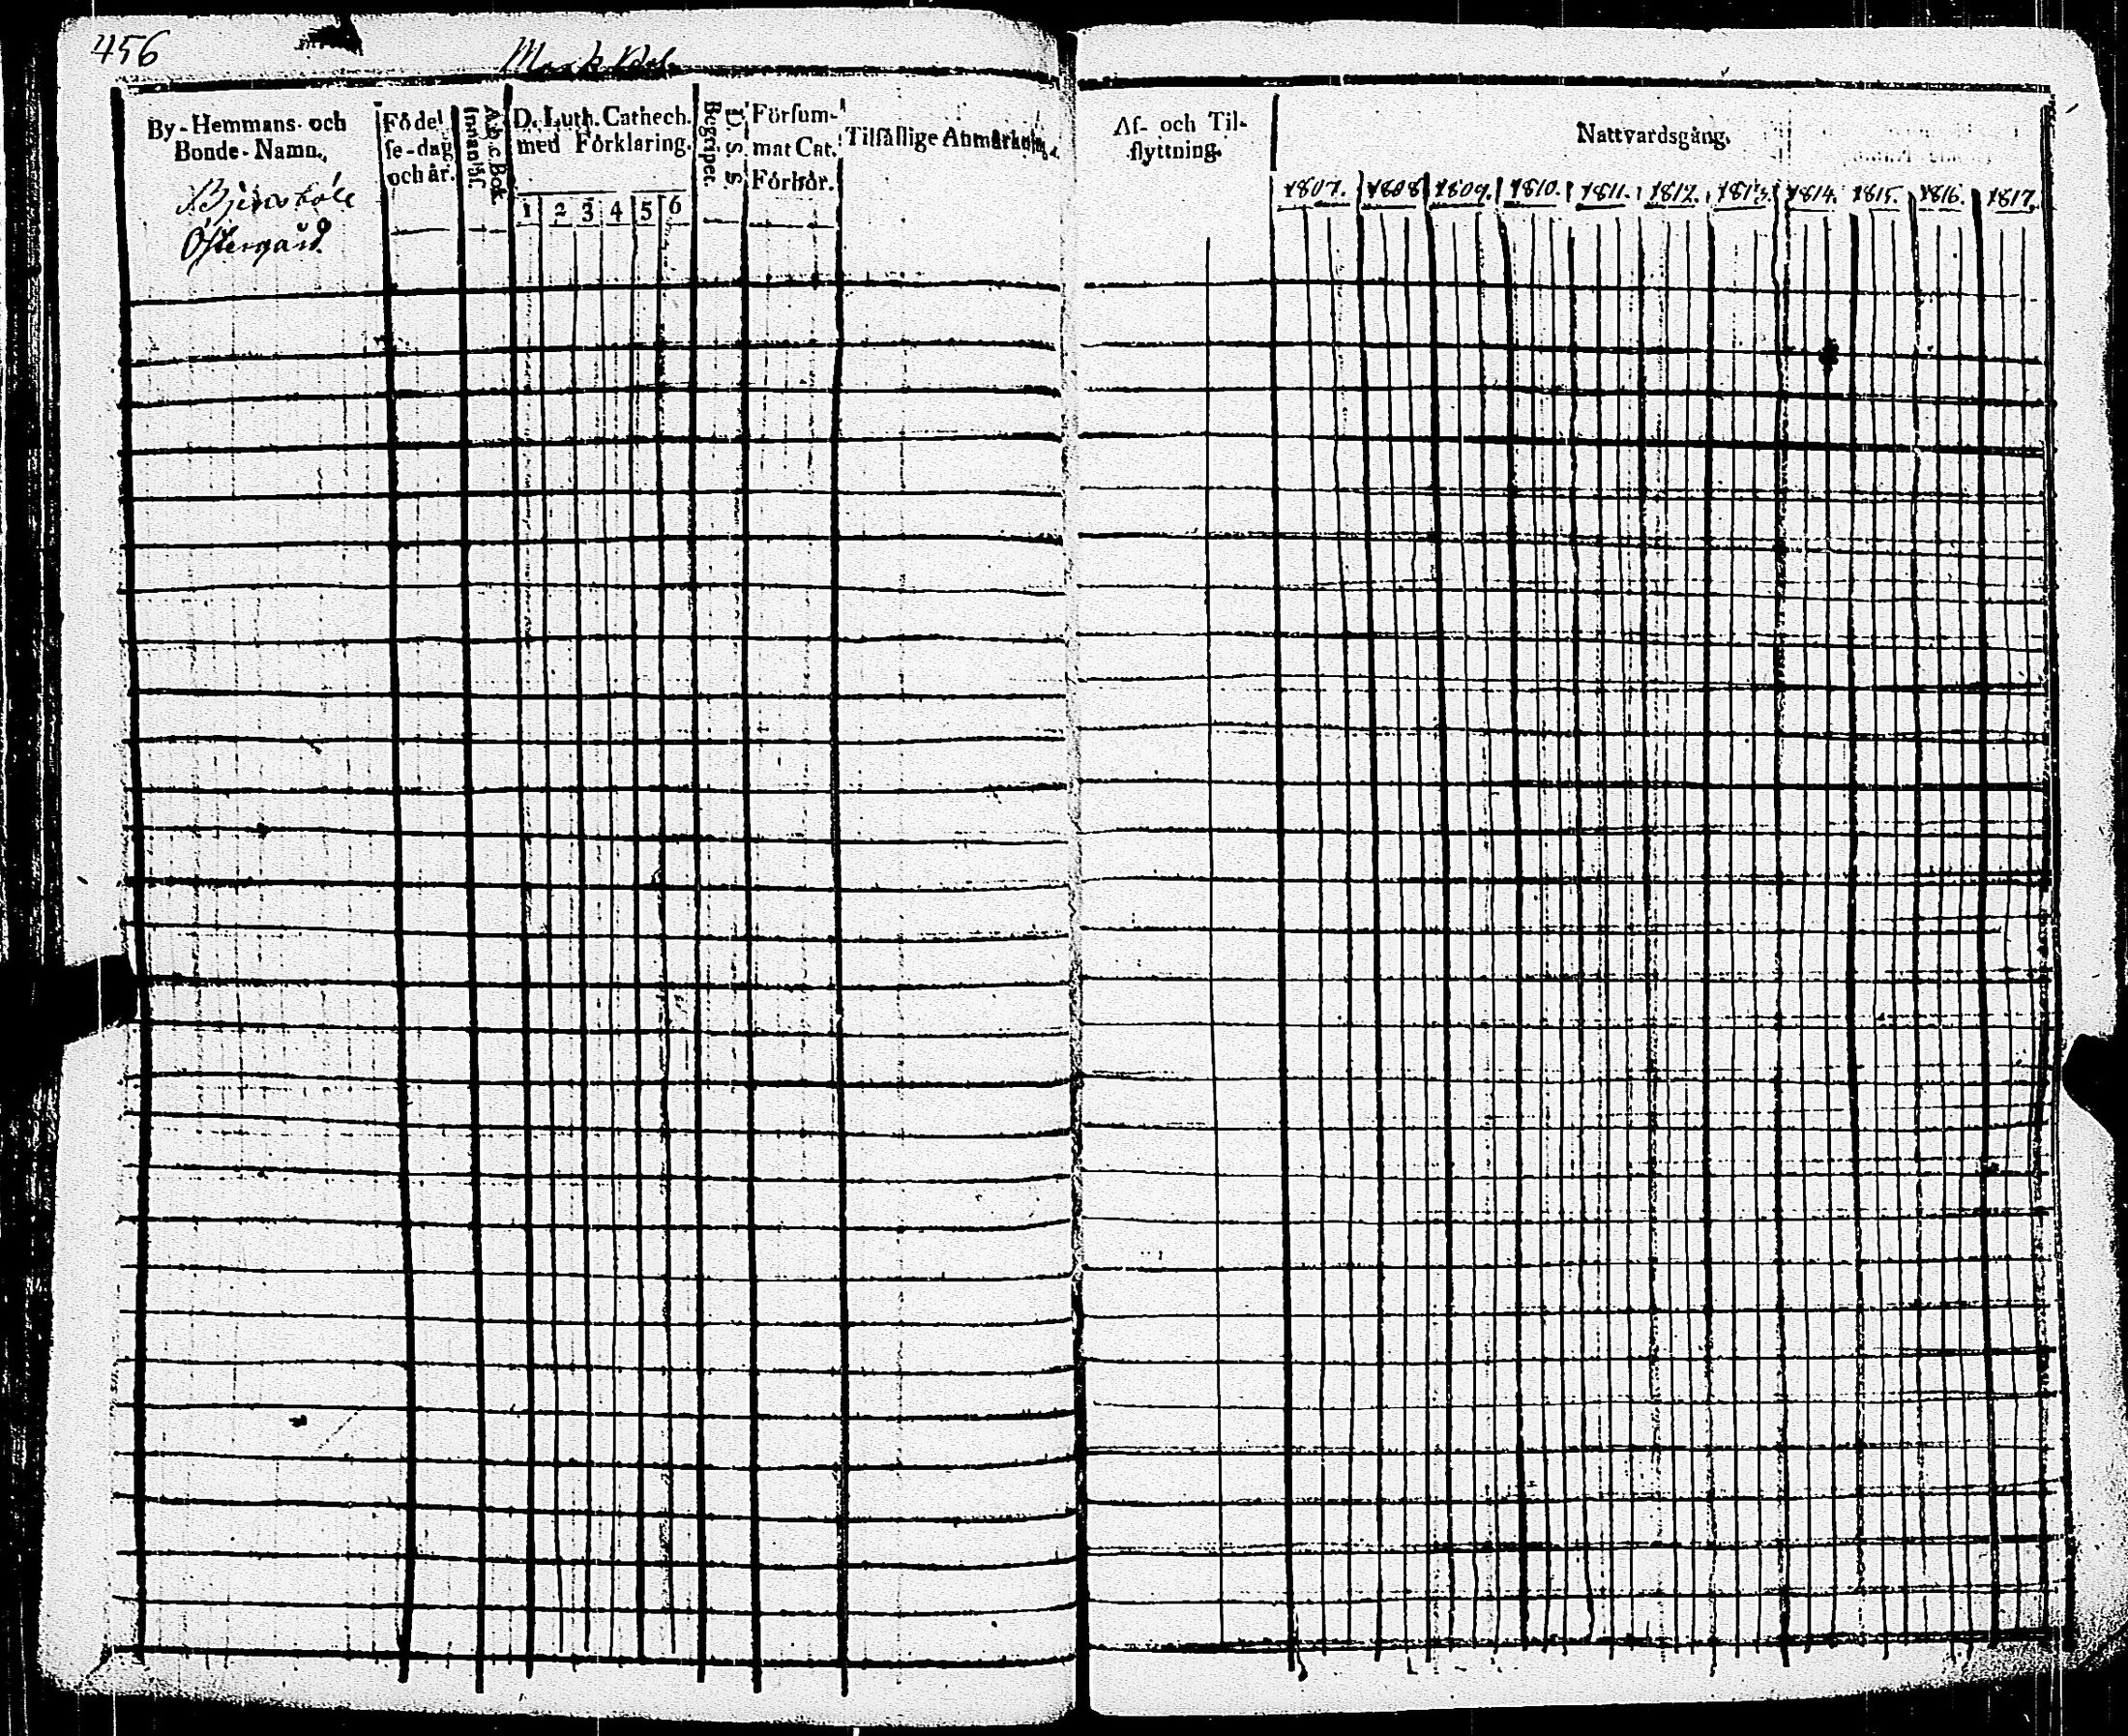 456
By-Hemmans- och
Bonde-Namn.
Östergård
Fódel
se-dag
och år.
A.b.c. Bok
Innanläs.
D. Luth. Cathech.
med Förklaring.
1 2 3 4 5 6
D. S. S.
Begriper.
Försum-
mat Cat.
Förhör.
Tilfällige Anmärkn.
Af- och Til-
flyttning.
Nattvardsgång.
1807. 1808 1809. 1810. 1811. 1812. 1813. 1814. 1815. 1816. 1817.